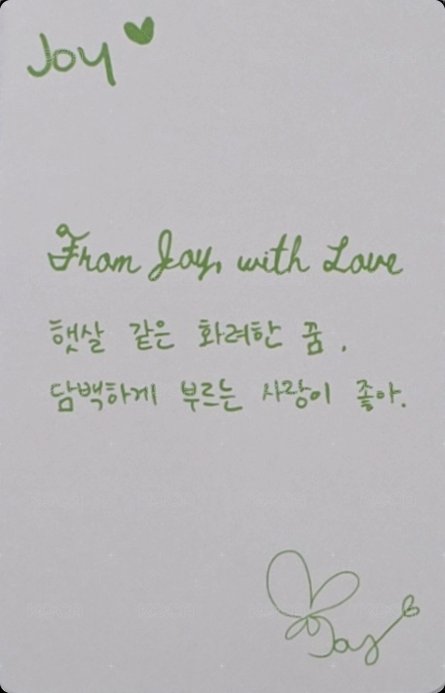 Joy
From Joy, with Love
햇살 같은 화려한 꿈.
담백하게 부르는 사랑이 좋아.
Joy